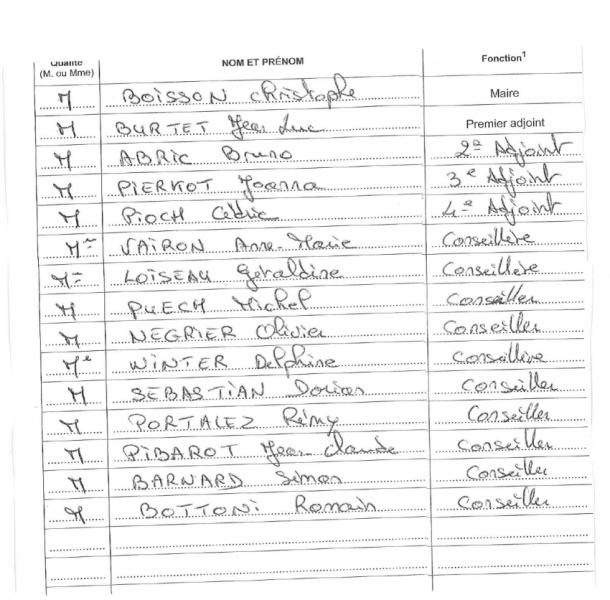 Qualité
(M. ou Mme) NOM ET PRÉNOM Fonction¹
M BOISSON Christophe Maire
M BURTET Jean Luc Premier adjoint
M ABRIC Bruno 2e Adjoint
M PIERROT Joanna 3e Adjoint
M PIOCH Cédric 4e Adjoint
Mme VAIRON Anne-Marie Conseillère
Mme LOISEAU Géraldine Conseillère
M PUECH Michel Conseiller
M NEGRIER Olivier Conseiller
Me WINTER Delphine Conseillère
M SEBASTIAN Dorian Conseiller
M PORTALEZ Rémy Conseiller
M PIBAROT Jean Claude Conseiller
M BARNARD Simon Conseiller
M BOTTONI Romain Conseiller